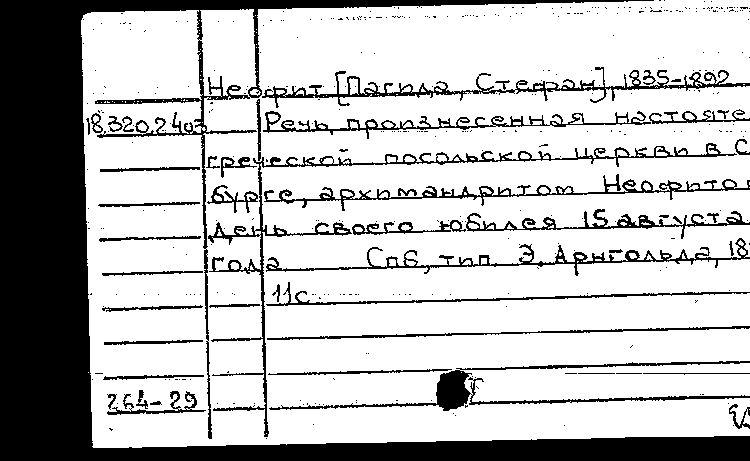 Неофит [Пагида, Стефан], 1835-1892
18.320.2403 Речь, произнесенная настояте
греческой посольской церкви в С
бурге, архимандритом Неофито
день своего юбилея 15 августа
года Спб, тип. Э. Арнгольда, 18
11с.
264-29